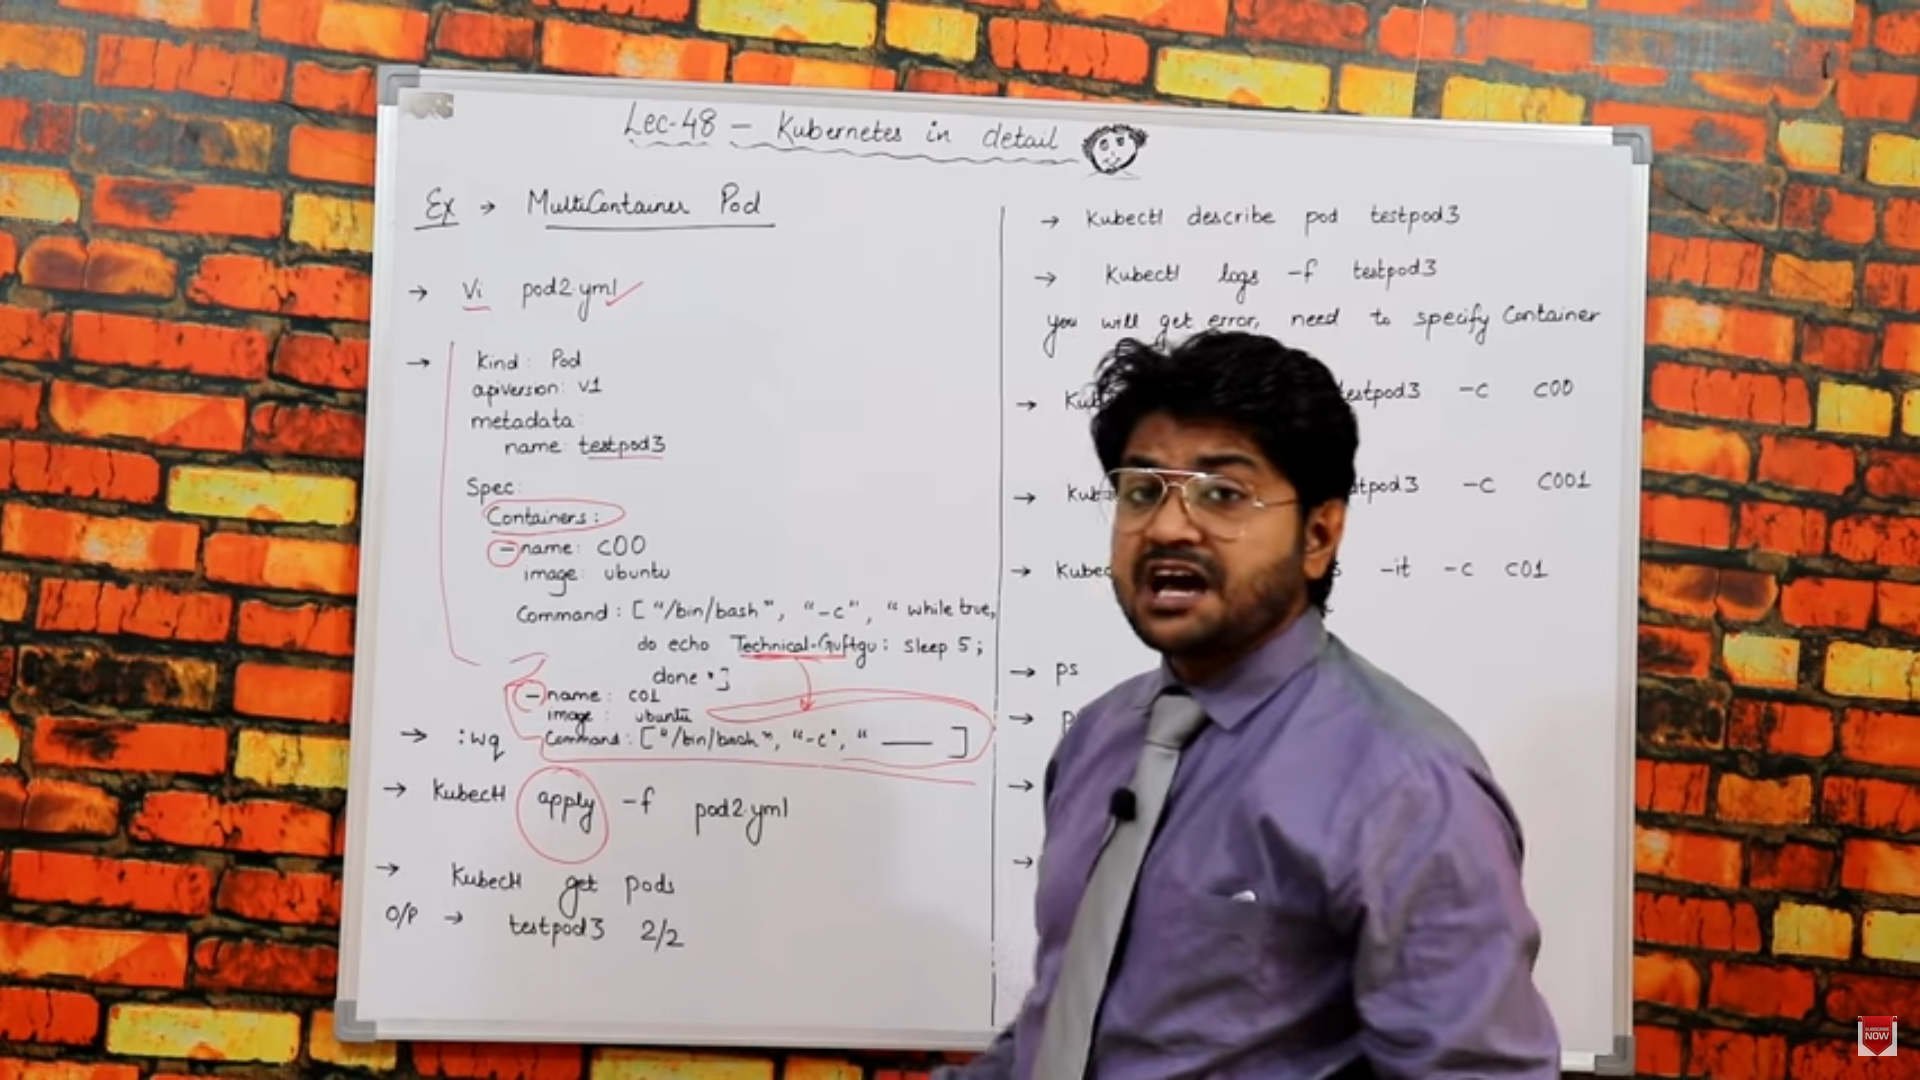 Lec-48 - Kubernetes in detail
Ex → MultiContainer Pod
→ Vi pod2.yml
→ kind: Pod
apiversion: v1
metadata:
name: testpod3
Spec:
Containers:
- name: c00
image: ubuntu
Command: ["/bin/bash", "-c", "while true,
do echo Technical-Guftgu: sleep 5;
done"]
- name: c01
image: ubuntu
→ :wq
Command: ["/bin/bash", "-c", " ___ ]
→ Kubectl apply -f pod2.yml
→ Kubectl get pods
O/P → testpod3 2/2
→ Kubectl describe pod testpod3
→ Kubectl logs -f testpod3
you will get error, need to specify Container
→ testpod3 -c c00
→ -c C001
→ -it -c c01
→ ps
→
→
→
SUBSCRIBE
NOW